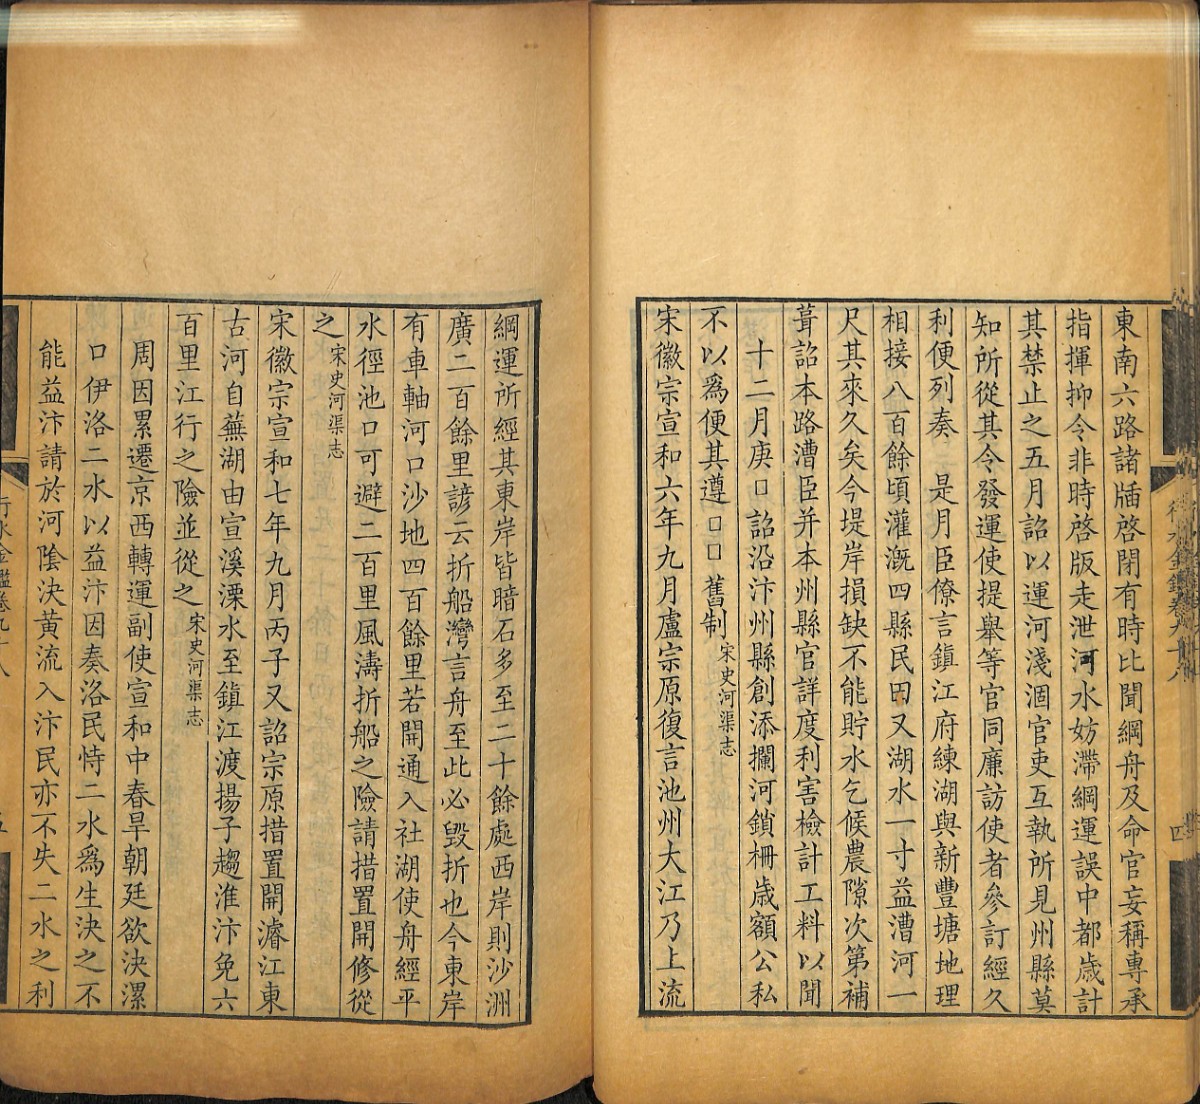 東南六路諸牐啓閉有時比聞綱舟及命官妄稱專承
指揮抑令非時啓版走泄河水妨滯綱運誤中都歲計
其禁止之五月詔以運河淺涸官吏互執所見州縣莫
知所從其令發運使提舉等官同廉訪使者參訂經久
利便列奏 是月臣僚言鎮江府練湖與新豐塘地理
相接八百餘頃灌溉四縣民田又湖水一寸益漕河一
尺其來久矣今堤岸損缺不能貯水乞候農隙次第補
葺詔本路漕臣并本州縣官詳度利害檢計工料以聞
十二月庚□詔沿汴州縣創添攔河鎖柵歲額公私
不以爲便其遵□□舊制宋史河渠志
宋徽宗宣和六年九月盧宗原復言池州大江乃上流
綱運所經其東岸皆暗石多至二十餘處西岸則沙洲
廣二百餘里諺云折船灣言舟至此必毀折也今東岸
有車軸河口沙地四百餘里若開通入社湖使舟經平
水徑池口可避二百里風濤折船之險請措置開修從
之宋史河渠志
宋徽宗宣和七年九月丙子又詔宗原措置開濬江東
古河自蕪湖由宣溪溧水至鎮江渡揚子趨淮汴免六
百里江行之險並從之宋史河渠志
周因累遷京西轉運副使宣和中春旱朝廷欲決漯
口伊洛二水以益汴因奏洛民恃二水爲生決之不
能益汴請於河陰決黄流入汴民亦不失二水之利
行水金鑑卷九十八